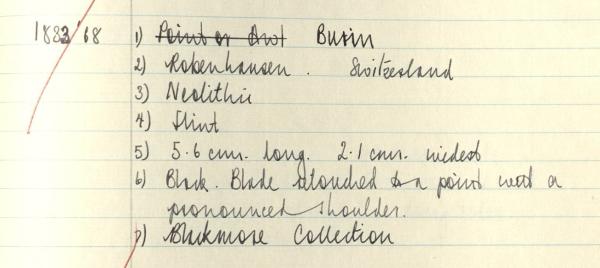 1883/68 1) ~~Point or Awl~~ Burin
2) Robenhausen. Switzerland
3) Neolithic
4) Flint
5) 5.6 cms. long. 2.1 cms. widest
6) Black. Blade retouched to a point with a
pronounced shoulder.
7) Blackmore Collection